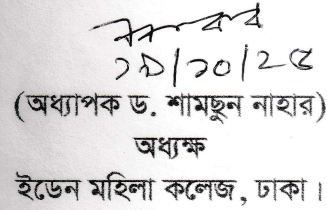 ২৯/১০/২৫
(অধ্যাপক ড. শামছুন নাহার)
অধ্যক্ষ
ইডেন মহিলা কলেজ, ঢাকা।